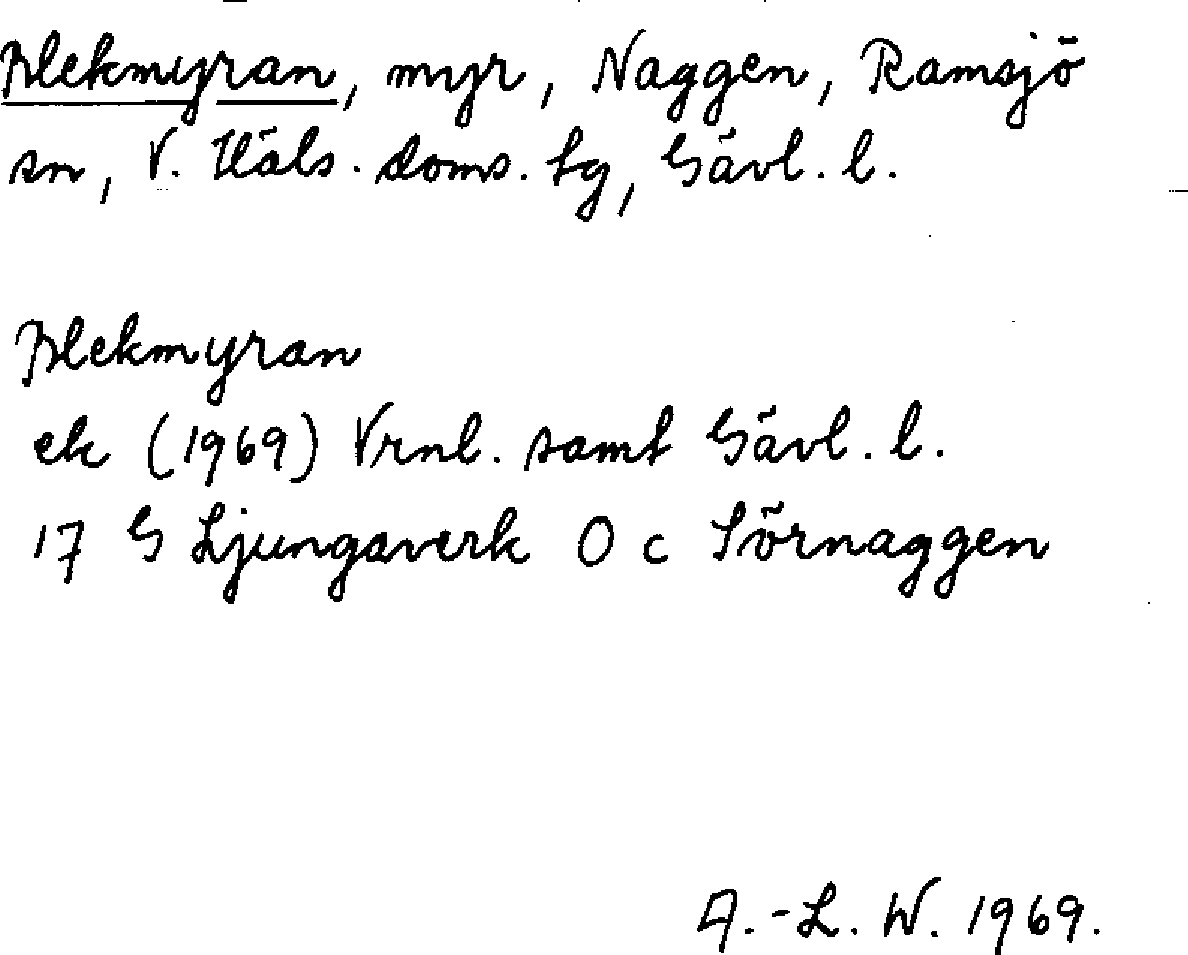 Blekmyran, myr, Naggen, Ramsjö
sn, V. Häls. doms. tg, Gävl. l.
Blekmyran
ek (1969) Vrnl. samt Gävl. l.
17 G Ljungaverk 0 c Sörnaggen
A.-L. W. 1969.